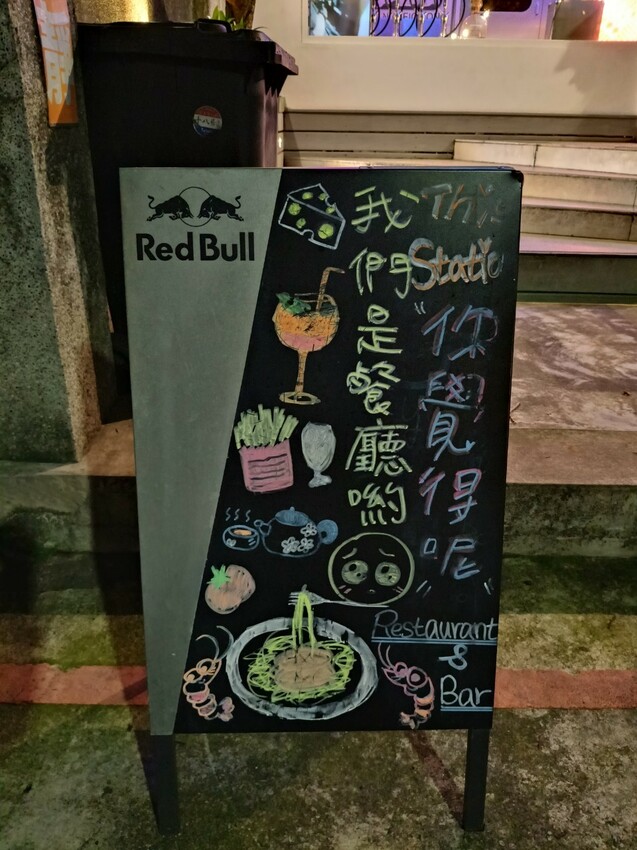 Red Bull
This
Static
"你覺得呢"
我們是餐廳喲
Restaurant
&
Bar